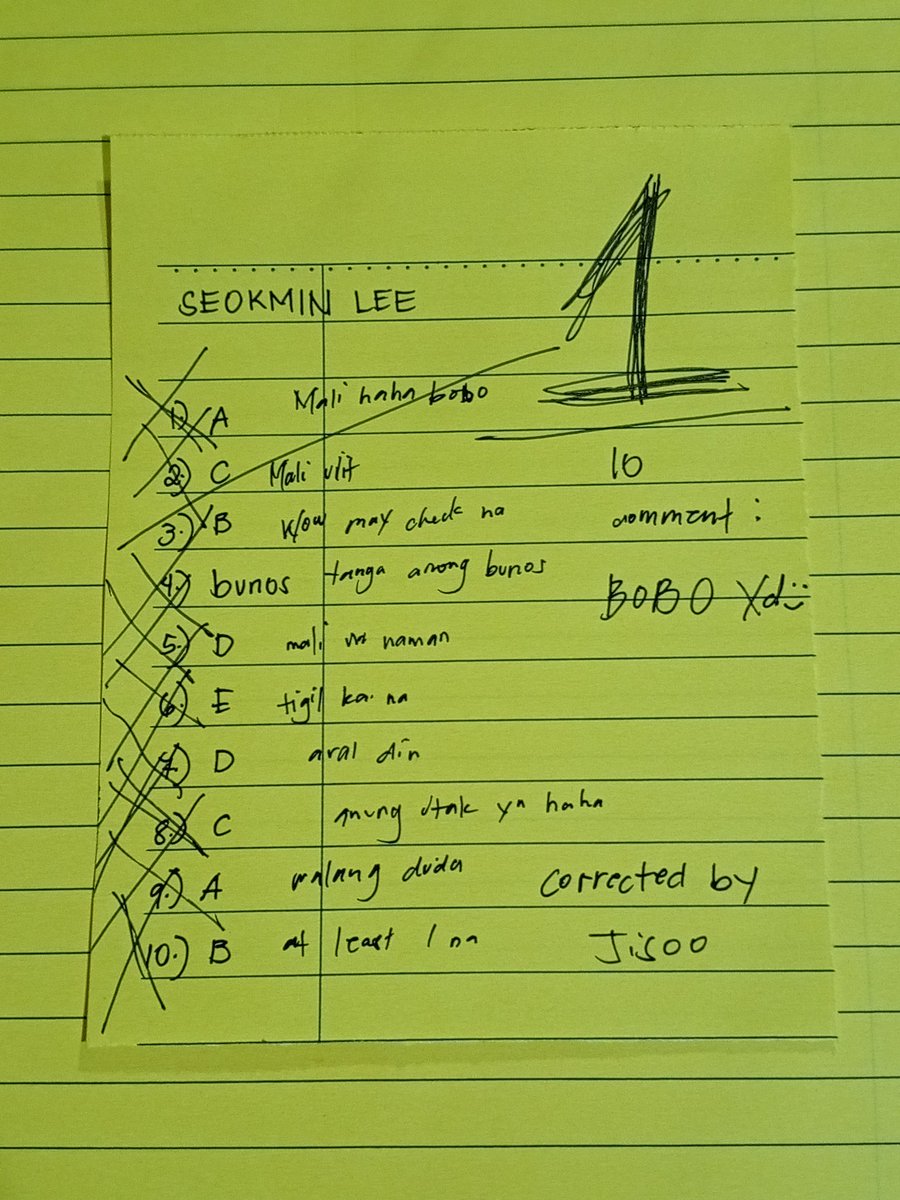 SEOKMIN LEE
1
10
1.) A Mali haha bobo
2.) C Mali ulit
3.) B may check na
4.) bunos tanga anong bunos
5.) D mali naman
6.) E tigil ka na
7.) D aral din
8.) C anung utak yn haha
9.) A walang duda
10.) B at least 1 na
comment :
BOBO Xd
Corrected by
Jisoo